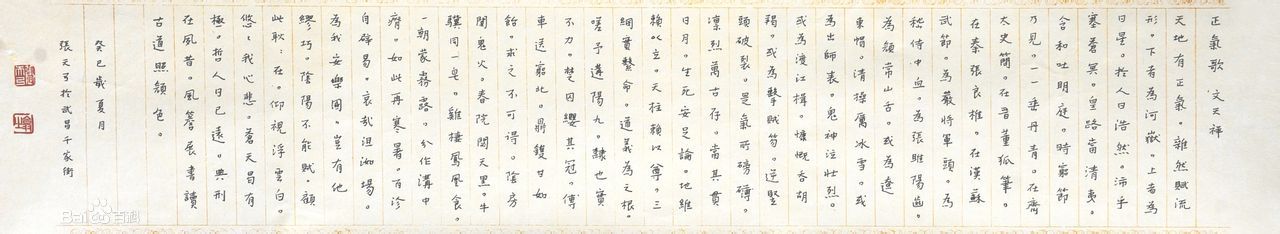 正氣歌 文天祥
天地有正氣。雜然賦流
形。下者為河嶽。上者為
日星。於人曰浩然。沛乎
塞蒼冥。皇路當清夷。
含和吐明庭。時窮節
乃見。一一垂丹青。在齊
太史簡。在晉董狐筆。
在秦張良椎。在漢蘇
武節。為嚴將軍頭。為
嵇侍中血。為張睢陽齒。
為顏常山舌。或為遼
東帽。清操厲冰雪。或
為出師表。鬼神泣壯烈。
或為渡江楫。慷慨吞胡
羯。或為擊賊笏。逆豎
頭破裂。是氣所磅礴。
凜烈萬古存。當其貫
日月。生死安足論。地維
賴以立。天柱賴以尊。三
綱實繫命。道義為之根。
嗟予遘陽九。隸也實
不力。楚囚纓其冠。傳
車送窮北。鼎鑊甘如
飴。求之不可得。陰房
闃鬼火。春院閟天黑。牛
驥同一皂。雞棲鳳凰食。
一朝蒙霧露。分作溝中
瘠。如此再寒暑。百沴
自辟易。哀哉沮洳場。
為我安樂國。豈有他
繆巧。陰陽不能賊。顧
此耿〻在。仰視浮雲白。
悠〻我心悲。蒼天曷有
極。哲人日已遠。典刑
在夙昔。風簷展書讀
古道照顏色。
癸巳歲夏月
張天弓於武昌千家街
Baidu百科